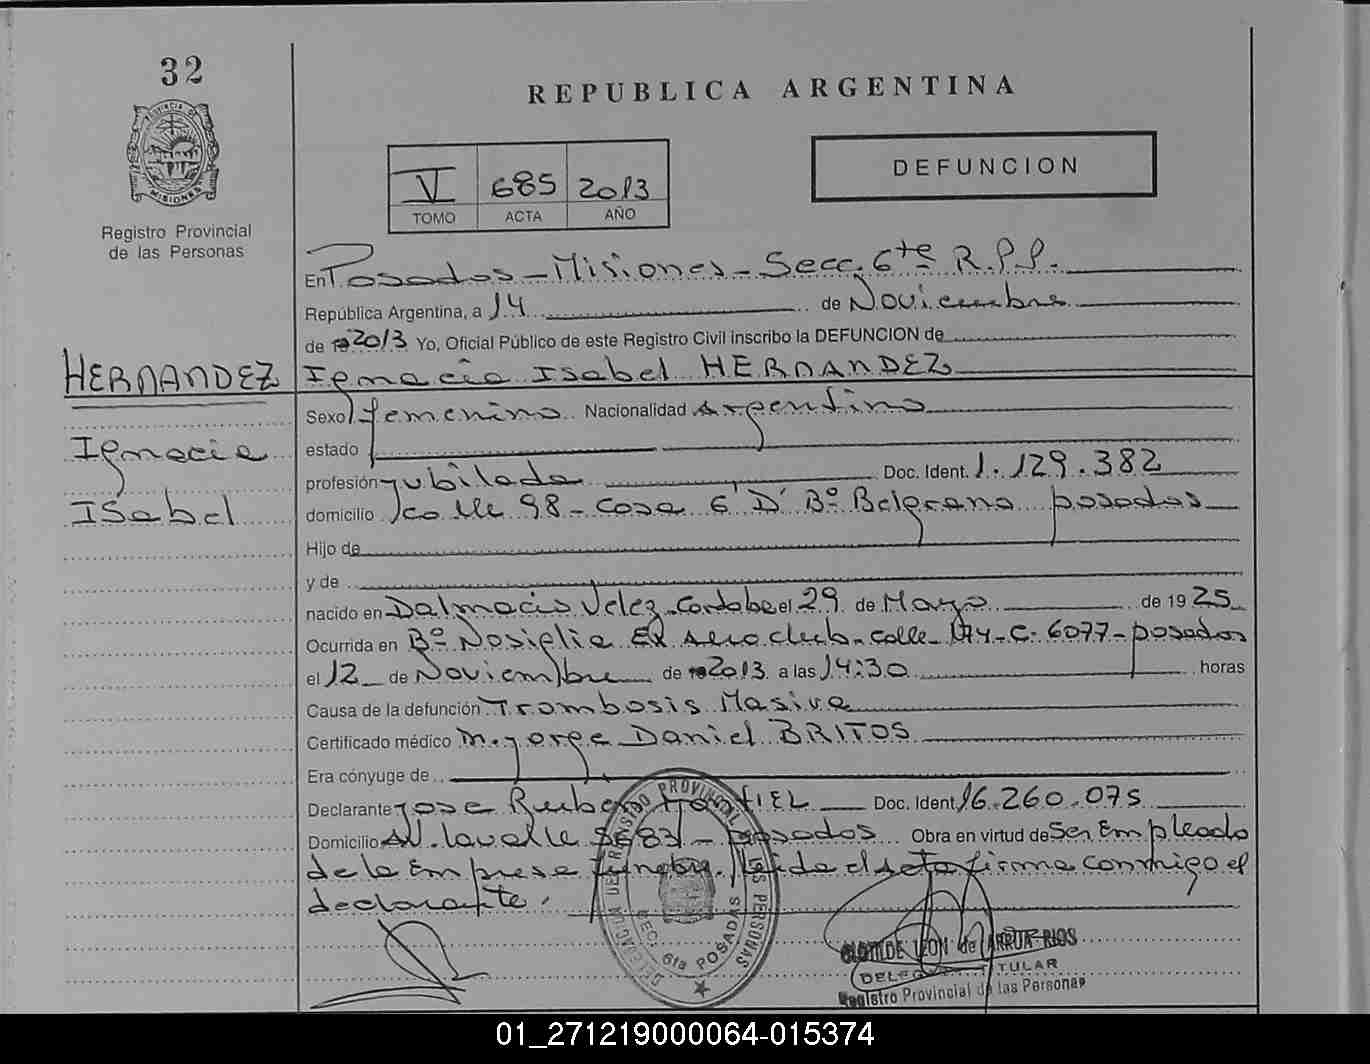 32
REPUBLICA ARGENTINA
PROVINCIA DE
MISIONES
Registro Provincial
de las Personas
V 685 2013
TOMO ACTA AÑO
DEFUNCION
En Posadas - Misiones - Secc. 6ta R.P.P.
República Argentina, a 14 de Noviembre
de 2013 Yo, Oficial Público de este Registro Civil inscribo la DEFUNCION de
HERNANDEZ
Ignacia Isabel HERNANDEZ
Sexo femenino Nacionalidad Argentina
Ignacia
estado
profesión jubilada Doc. Ident. 1.129.382
Isabel
domicilio calle 98 - Casa 6 'D' Bº Belgrano posadas
Hijo de
y de
nacido en Dalmacio Velez - Cordoba el 29 de Mayo de 1925
Ocurrida en Bº Nosiglia Ex Aeroclub - calle - 174 - C. 6077 - posadas
el 12 de Noviembre de 2013 a las 14:30 horas
Causa de la defunción Trombosis Masiva
Certificado médico M. Jorge Daniel BRITOS
Era cónyuge de
Declarante Jose Ruben MONTIEL Doc. Ident. 16.260.075
Domicilio Av. Lavalle 5683 - posadas Obra en virtud de Ser Empleado
de la Empresa funebre. leida el acta firma conmigo el
declarante.
DELEGACION DEL REGISTRO PROVINCIAL DE LAS PERSONAS
SEC. 6ta POSADAS
CLOTILDE LEON de ARRUA RIOS
DELEGADA TITULAR
Registro Provincial de las Personas
01_271219000064-015374